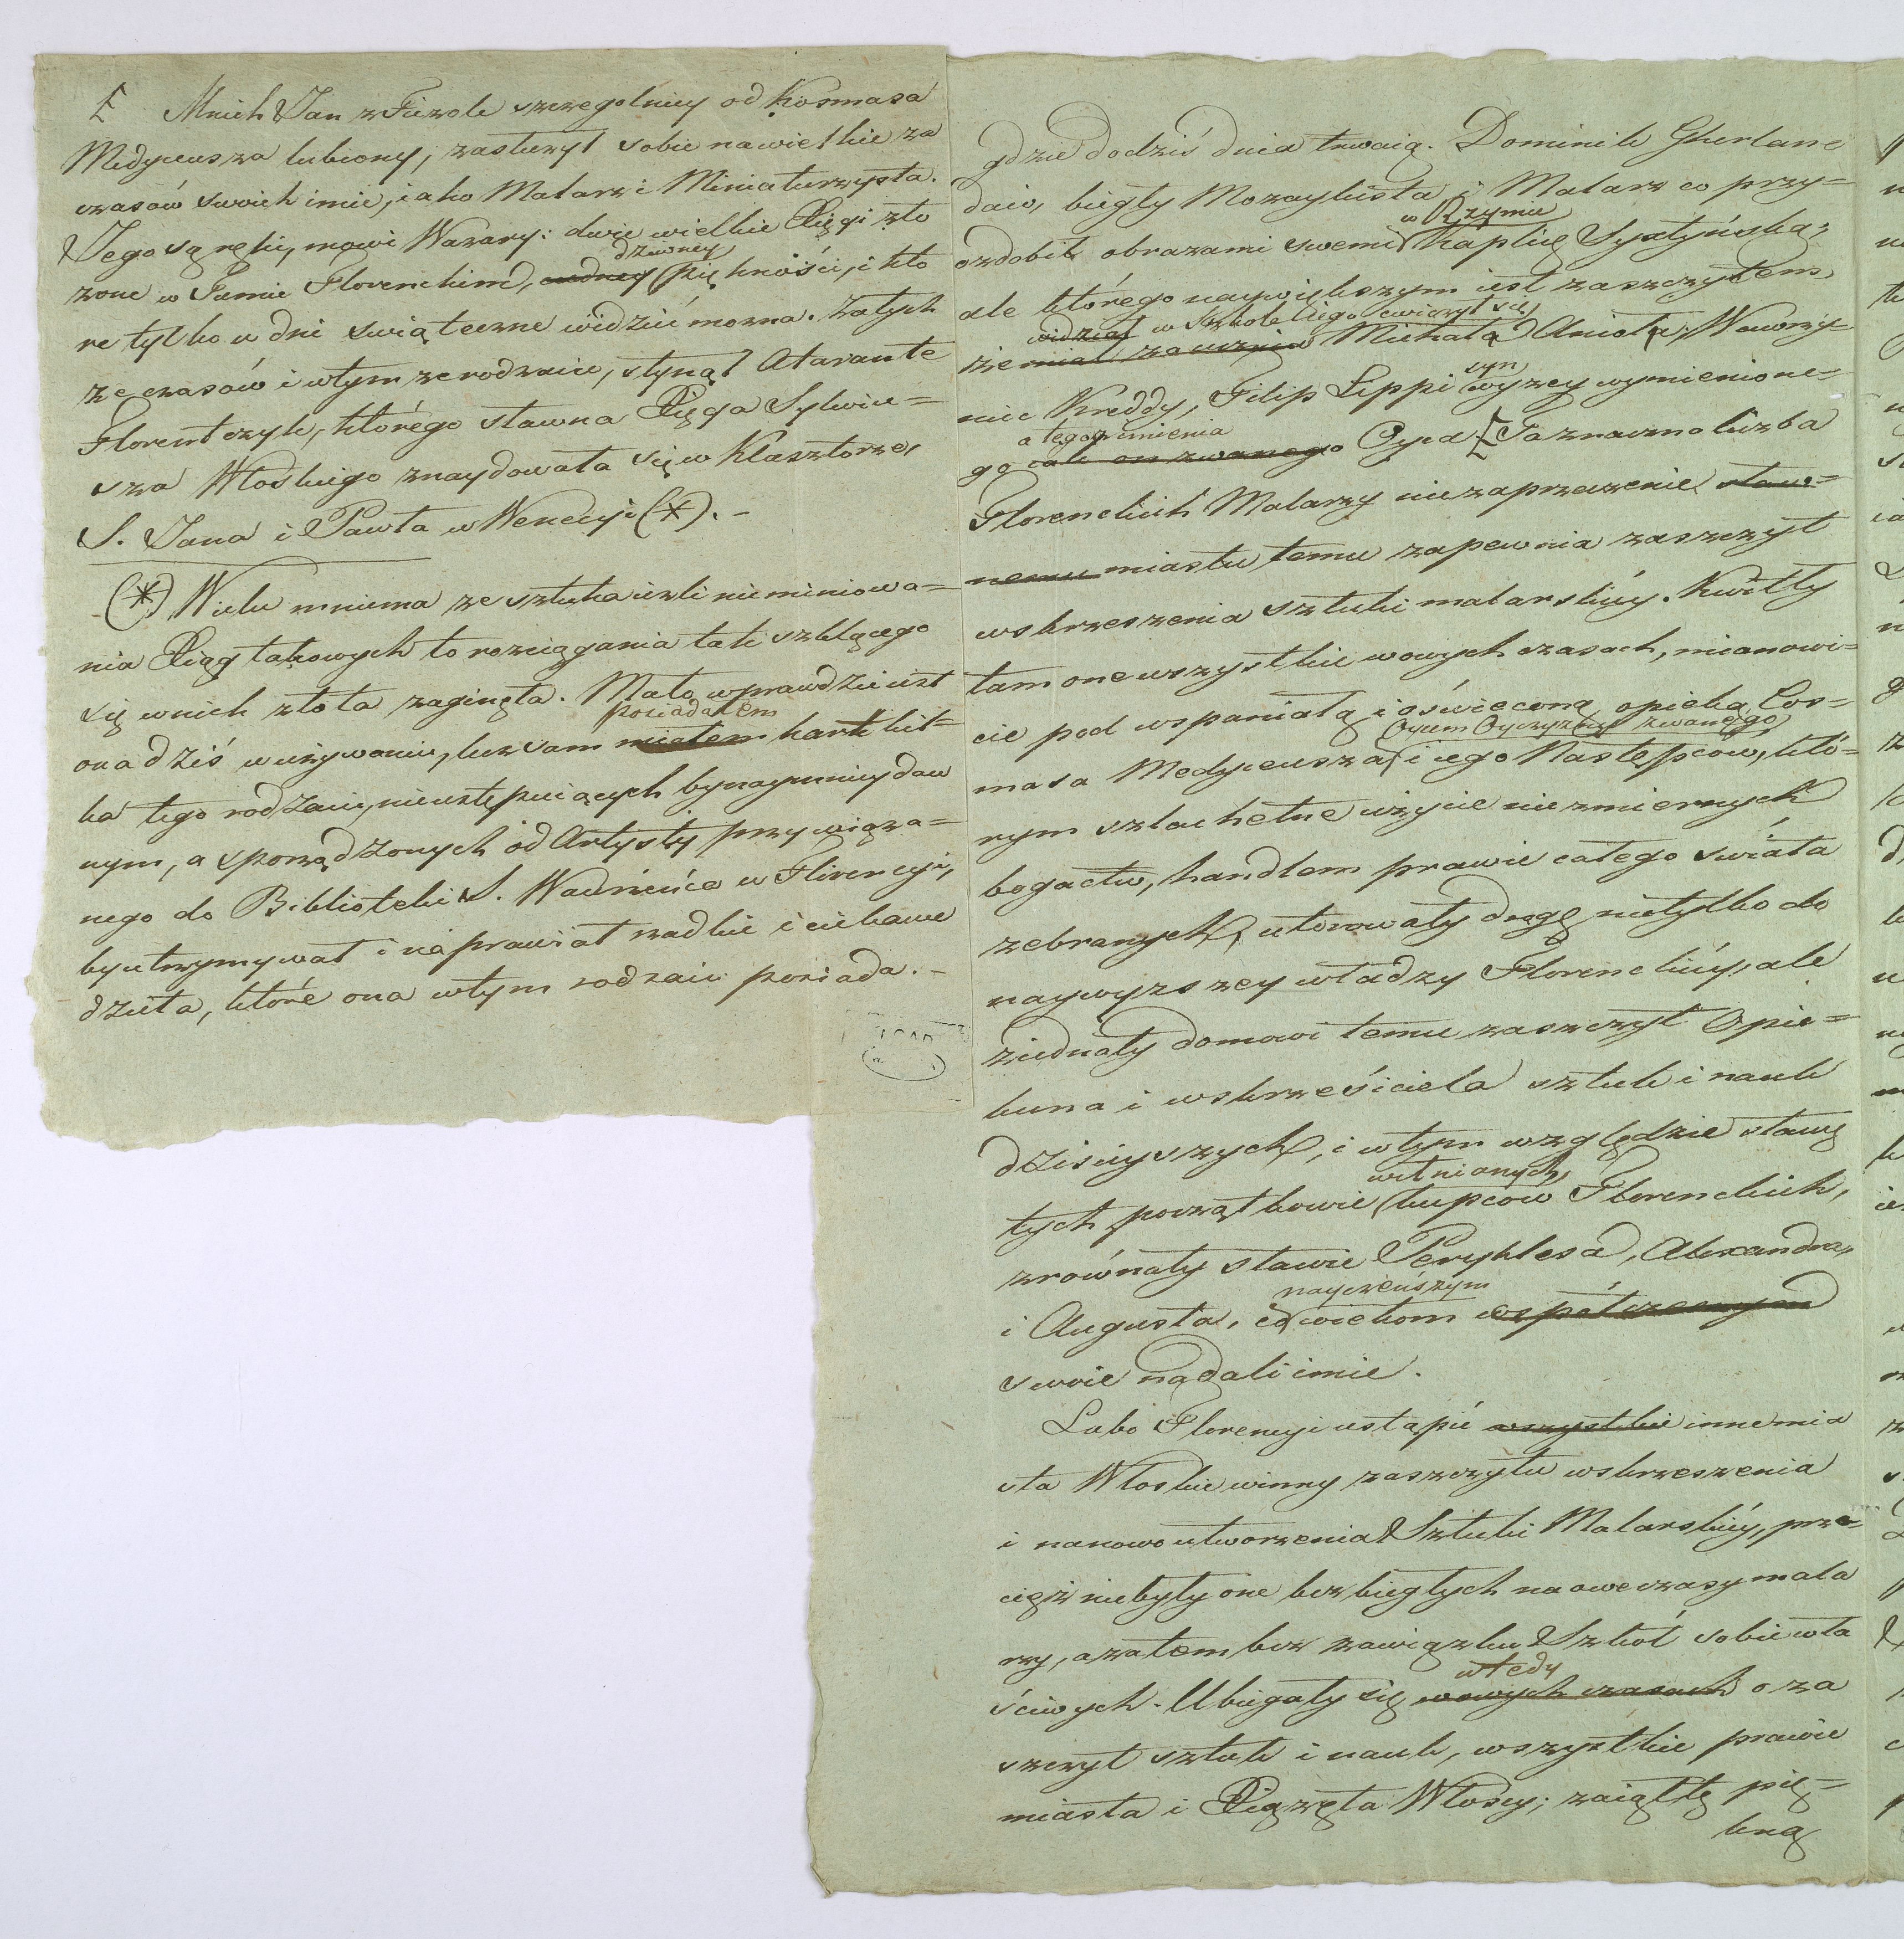 Ł Mnich Jan z Fiezole szczegolniey od Kosmasa
Medyceusza lubiony, zasłużył sobie nawielkie za
czasów swoich imie, iako Malarz i Miniaturzysta.
Jego są ręki, mowi Wazary: dwie wielkie Xięgi zło
dziwney
żone w Tumie Florenckim, cudney piękności, i któ
re tylko w dni swiąteczne widzić można. Zatych
że czasów i wtym że rodzaiu, słynął Atavante
Florentczyk, którego sławna Xięga Sylwiu=
sza Włoskiego znaydowała się w Klasztorze,
S. Jana i Pawła w Wenecyi (*). -
(*) Wielu mniema że sztuka iezli nie miniowa=
nia Xiąg takowych to rozciągania tak szklącego
się wnich złota zaginęła. Mało wprawdzie iest
posiadałem
ona dziś w używaniu, lecz sam miałem kart kil=
ka tego rodzaiu, nieustępuiących bynaymniey daw
nym, a sporządzonych od Artysty przywiąza=
nego do Biblioteki S. Wawrzeńca w Florencyi,
by utrzymywał i naprawiał rzadkie i ciekawe
dzieła, które ona wtym rodzaiu posiada. -
gdzie do dziś dnia trwaią. Dominik Gherlan=
daio, biegły Mozaykista i Malarz co przy=
w Rzymie
ozdobił obrazami swemi Kaplicę Syxtyńską;
ale którego naywiększym iest zaszczytem,
widział w Szkole iego ćwiczył się
że miał za ucznia Michała Anioła; Wawrzy=
syn
niec Kreddy, Filip Lippi wyzey wymienione=
a tegoż imienia
go iak on zwanego Oyca Ł Ta znaczna liczba
Florenckich Malarzy niezaprzeczenie staw=
nemu miastu temu zapewnia zaszczyt
wskrzeszenia sztuki malarskiey. Kwitły
tam one wszystkie w owych czasach, mianowi=
cie pod wspaniałą i oświeconą opieką Cos=
Oycem Oyczyzny zwanego
masa Medyceusza i iego Następców, któ=
rym szlachetne użycie niezmiernych
bogactw, handlem prawie całego swiata
zebranych, utorowały drogę nietylko do
naywyzszey władzy Florenckiey, ale
ziednały domowi temu zaszczyt Opie=
kuna i wskrześiciela sztuk i nauk
dzisieyszych, i wtym względzie sławę
wełnianych
tych początkowie kupców Florenckich,
zrównały sławie Peryklesa, Alexandra,
naycelńszym
i Augusta, co wiekom współczesnym
swoie nadali imie.
Lubo Florencyi ustąpić wszystkie inne mia
sta Włoskie winny zaszczytu wskrzeszenia
i nanowo utworzenia Sztuki Malarskiey, prze=
cięż niebyły one bez biegłych na owe czasy mala
rzy, a zatem bez zawiązku Szkół sobie wła
wtedy
ściwych. Ubiegały się w owych czasach o za
szczyt sztuk i nauk, wszystkie prawie
miasta i Xiążęta Włoscy; zaiął tę pię=
kną